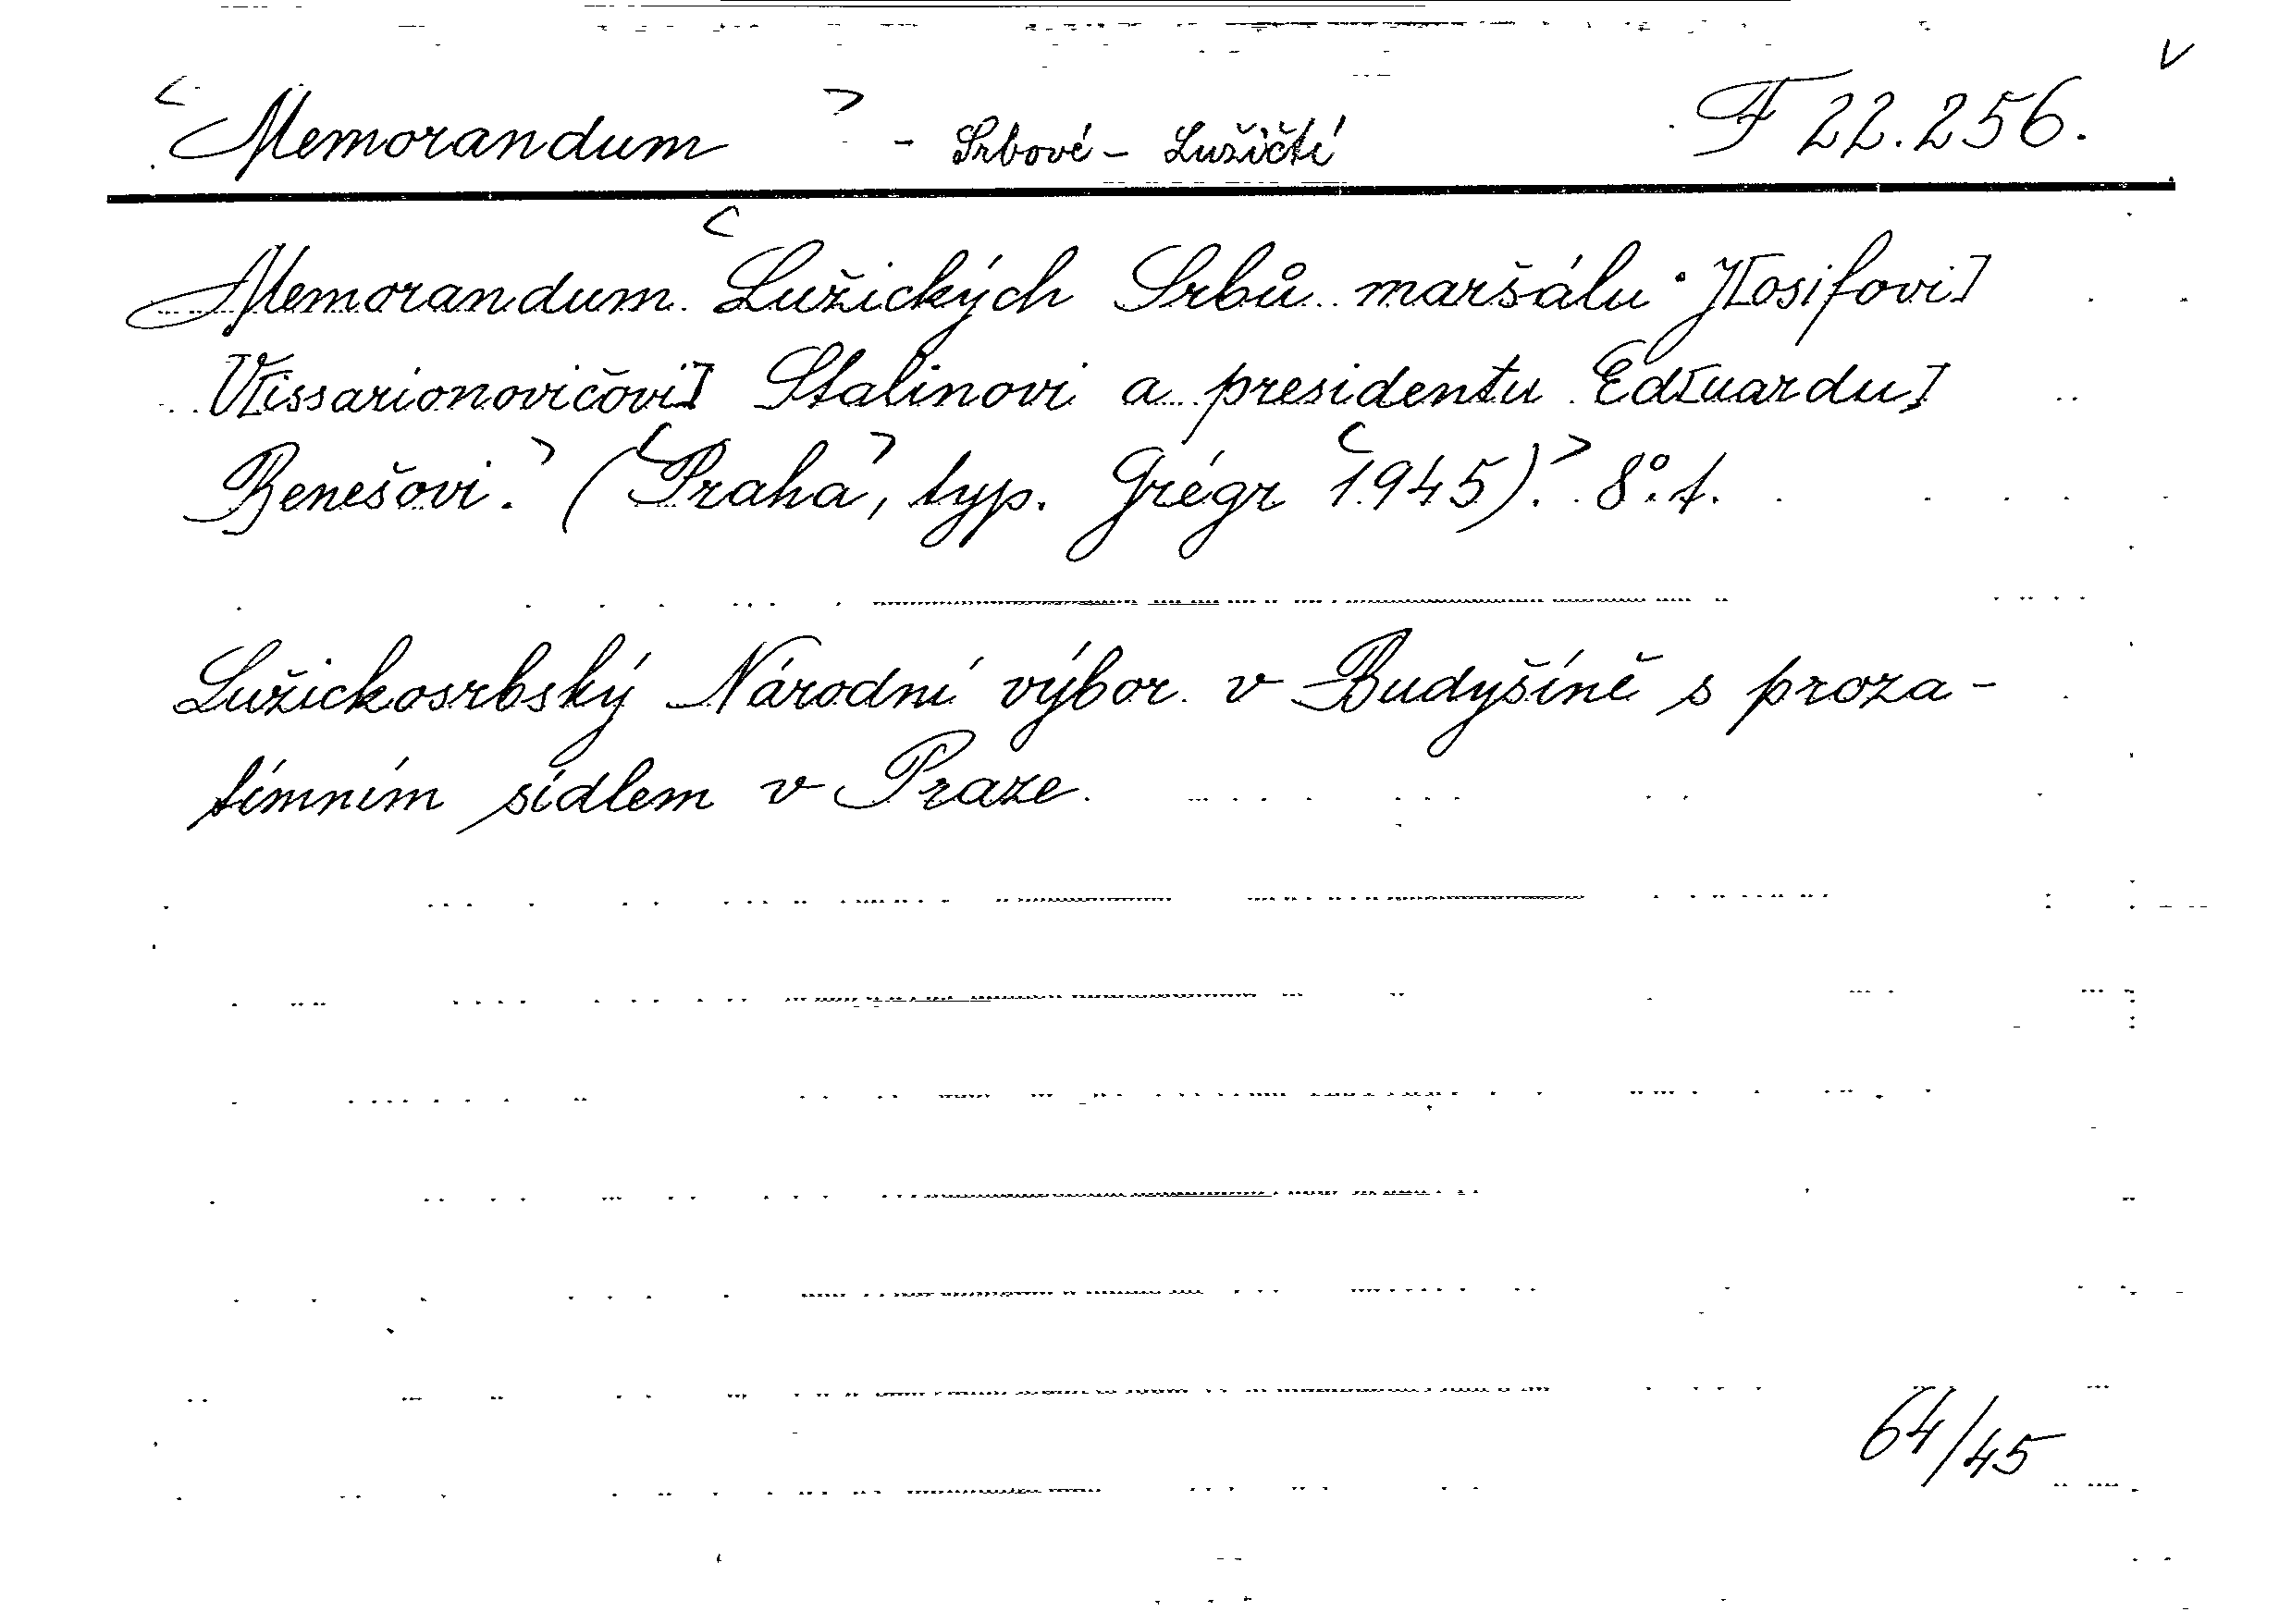 Memorandum - Srbové - Lužičtí F 22.256.
Memorandum Lužických Srbů maršálu J[osifovi]
V[issarionovičovi] Stalinovi a presidentu Ed[uardu]
Benešovi. (Praha, typ. Grégr 1945). 8°. f.
Lužickosrbský Národní výbor v Budyšíně s proza-
tímním sídlem v Praze.
64/45